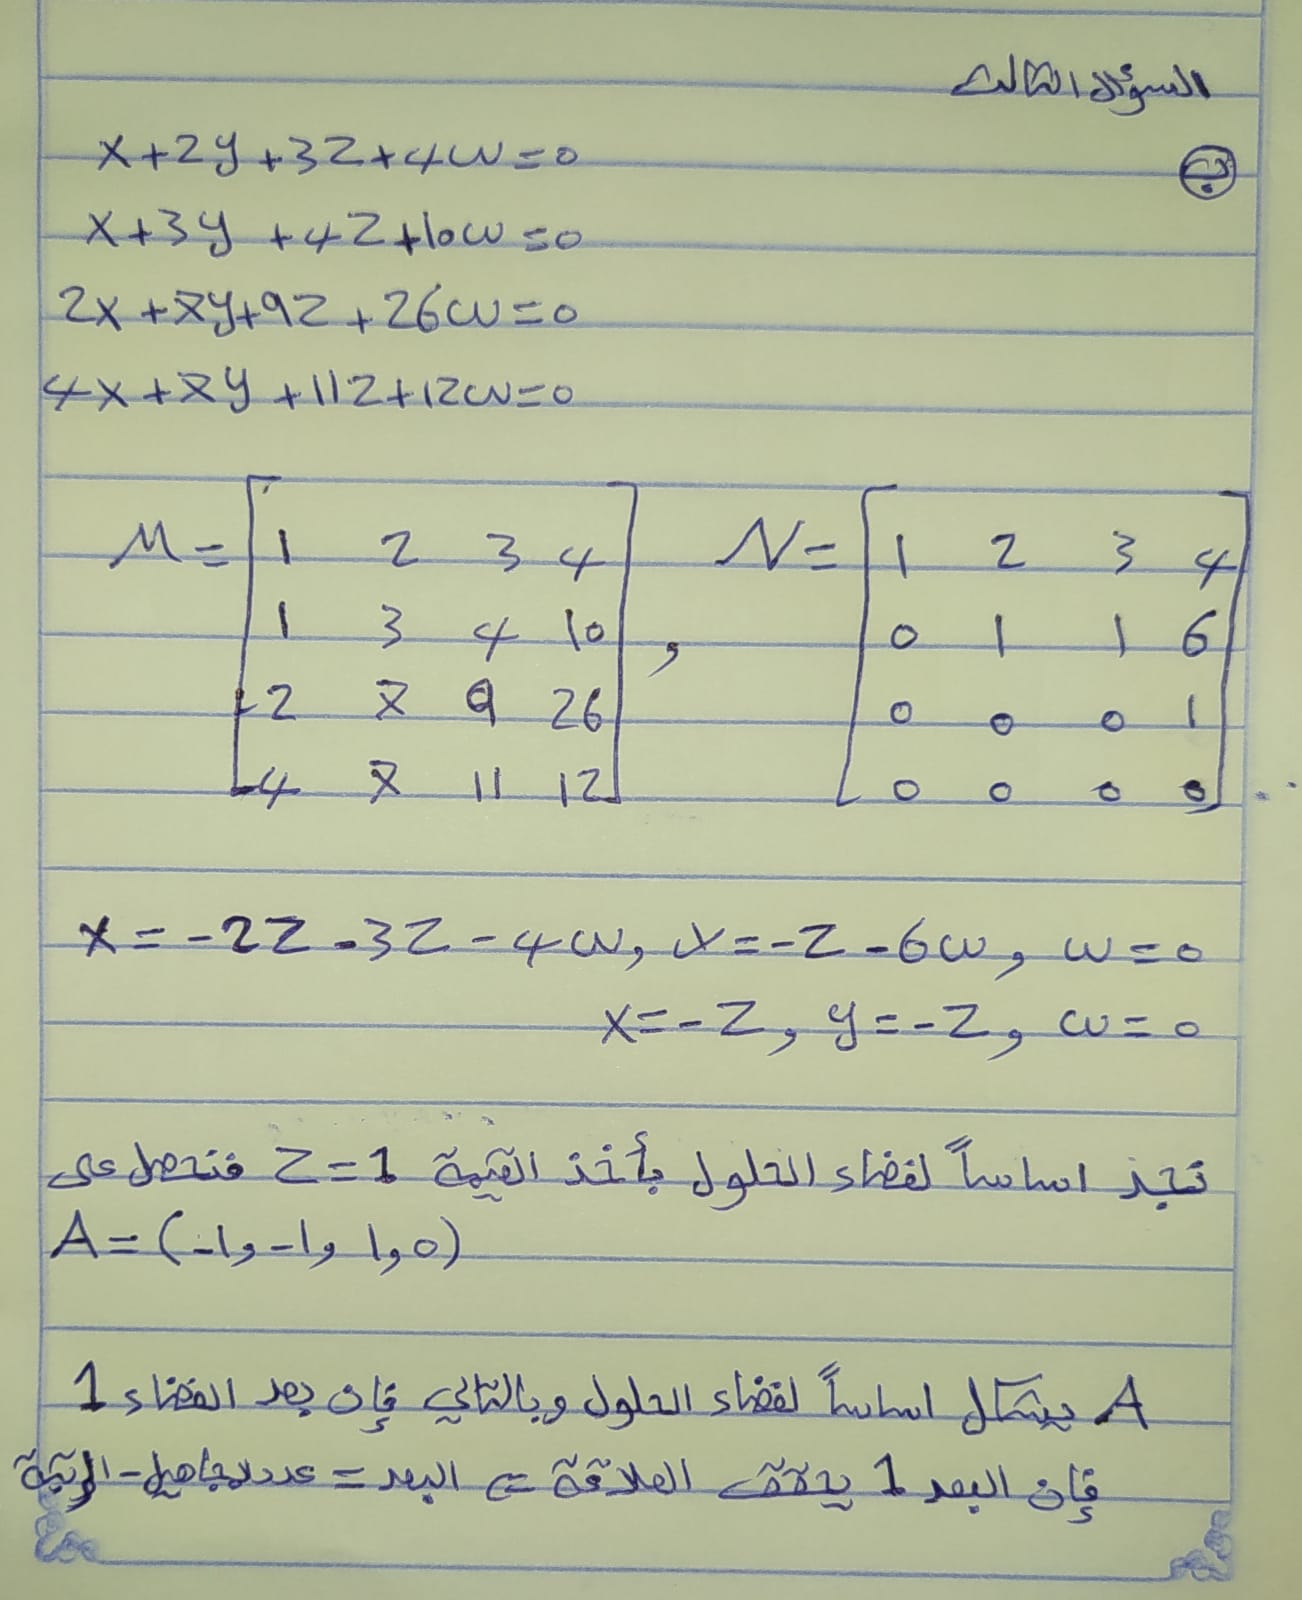 السؤال الثالث
ب
x+2y+3z+4w=0
x+3y+4z+10w=0
2x+7y+9z+26w=0
4x+7y+11z+12w=0
M=[1 2 3 4
1 3 4 10
2 7 9 26
4 7 11 12], N=[1 2 3 4
0 1 1 6
0 0 0 1
0 0 0 0]
x=-2z-3z-4w, x=-z-6w, w=0
x=-z, y=-z, w=0
نجد اساساً لفضاء الحلول بأخذ القيمة z=1 فنحصل على
A=(-1, -1, 1, 0)
A يشكل اساساً لفضاء الحلول وبالتالي فإن بعد الفضاء 1
فإن البعد 1 يحقق العلاقة البعد = عدد المجاهيل - الرتبة